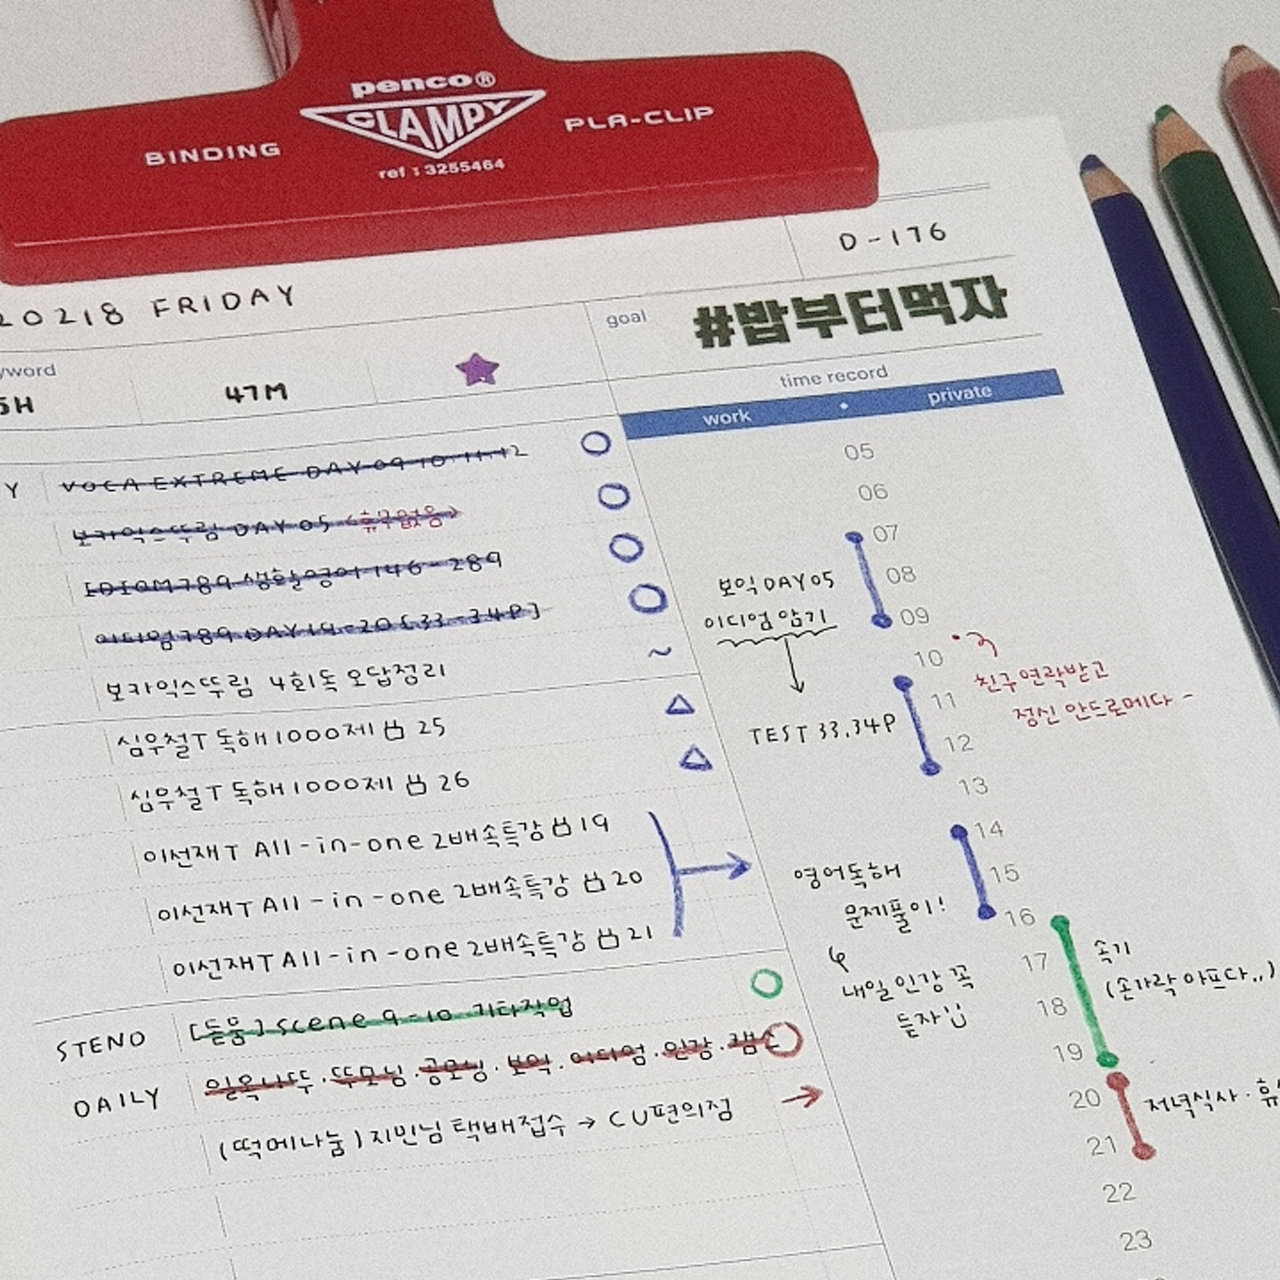 penco®
CLAMPY
BINDING
PLA-CLIP
ref : 3255464
D-176
20218 FRIDAY
goal
#밥부터먹자
yword
5H
47M
time record
work • private
Y
VOCA EXTREME DAY 09 10 11 12
보카익스뚜림 DAY 05 <휴구없음>
IDIOM 789 생활영어 146-289
이디엄789 DAY 19-20 [33-34P]
보카익스뚜림 4회독 오답정리
~
심우철T 독해1000제 25
심우철T 독해1000제 26
이선재T All-in-one 2배속특강 19
이선재T All-in-one 2배속특강 20
이선재T All-in-one 2배속특강 21
STENO
[돋움] scene 9-10 기타작업
DAILY
일옥나뚜 · 뚜모닝 · 굿모닝 · 보익 · 이디엄 · 인강
(떡메나눔) 지민님 택배접수 → CU편의점
05
06
07
08
09
10
11
12
13
14
15
16
17
18
19
20
21
22
23
보익 DAY 05
이디엄 암기
TEST 33.34P
친구연락받고
정신 안드로메다 -
영어독해
문제풀이!
내일 인강 꼭
듣자
속기
(손가락 아프다..)
저녁식사 · 휴